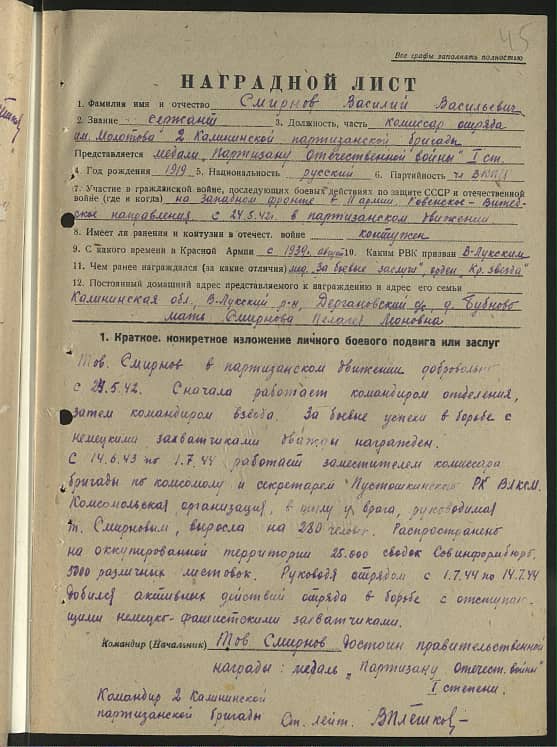 45
Все графы заполнять полностью
НАГРАДНОЙ ЛИСТ
1. Фамилия имя и отчество Смирнов Василий Васильевич
2. Звание сержант 3. Должность, часть комиссар отряда
им. Молотова 2 Калининской партизанской бригады
Представляется медали „Партизану Отечественной войны" I ст.
4. Год рождения 1919 5. Национальность русский 6. Партийность чл ВКП/б
7. Участие в гражданской войне, последующих боевых действиях по защите СССР и отечественной
войне (где и когда) на Западном фронте в 11 армии. Ровенское-Витеб-
ское направления, с 24.5.42г. в партизанском движении
8. Имеет ли ранения и контузии в отечест. войне контужен
9. С какого времени в Красной Армии с 1939г. август 10. Каким РВК призван В-Лукским
11. Чем ранее награждался (за какие отличия) мед. „За боевые заслуги" орден „Кр. звезда"
12. Постоянный домашний адрес представляемого к награждению и адрес его семьи
Калининская обл., В-Лукский р-н, Дергановский с/с, д. Бубново
мать Смирнова Пелагея Леоновна
1. Краткое, конкретное изложение личного боевого подвига или заслуг
Тов. Смирнов в партизанском движении добровольно
с 24.5.42. Сначала работает командиром отделения,
затем командиром взвода. За боевые успехи в борьбе с
немецкими захватчиками дважды награжден.
С 14.6.43 по 1.7.44 работает заместителем комиссара
бригады по комсомолу и секретарем Пустошкинского РК ВЛКСМ.
Комсомольская организация, в тылу у врага, руководимая
т. Смирновым, выросла на 280 человек. Распространено
на оккупированной территории 25.000 сводок Совинформбюро,
5000 различных листовок. Руководя отрядом с 1.7.44 по 14.7.44
добился активных действий отряда в борьбе с отступаю-
щими немецко-фашистскими захватчиками.
Командир (Начальник) Тов Смирнов достоин правительственной
награды: медаль „Партизану Отечест. войны"
I степени.
Командир 2 Калининской
партизанской бригады Ст. лейт. В Плешков